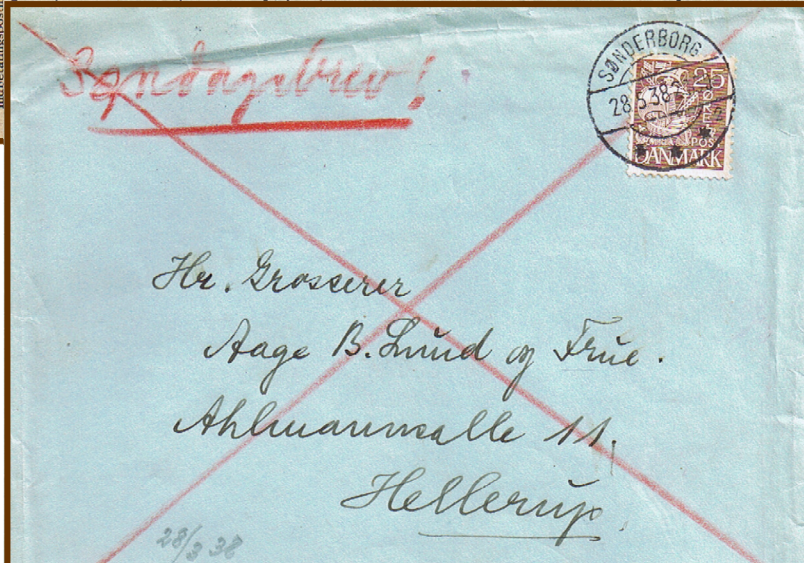 Søndagsbrev!
SØNDERBORG
28.5.38
25
ØRE
DANMARK
Hr. Grosserer
Aage B. Lund og Frue.
Ahlmannsalle 11.
Hellerup.
28/3 38